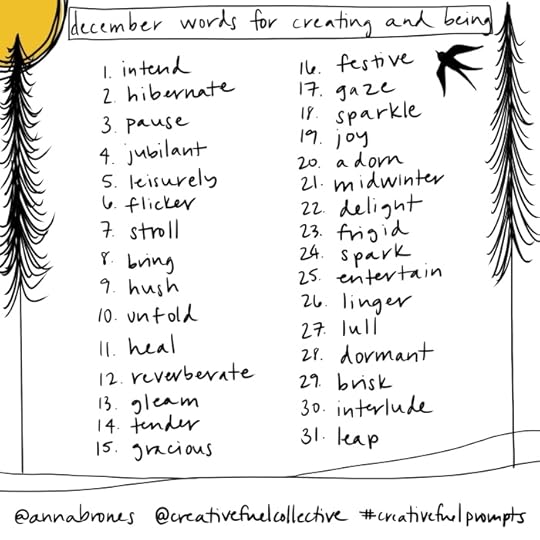 december words for creating and being
1. intend
2. hibernate
3. pause
4. jubilant
5. leisurely
6. flicker
7. stroll
8. bring
9. hush
10. unfold
11. heal
12. reverberate
13. gleam
14. tender
15. gracious
16. festive
17. gaze
18. sparkle
19. joy
20. adorn
21. midwinter
22. delight
23. frigid
24. spark
25. entertain
26. linger
27. lull
28. dormant
29. brisk
30. interlude
31. leap
@annabrones @creativefuelcollective #creativefuelprompts